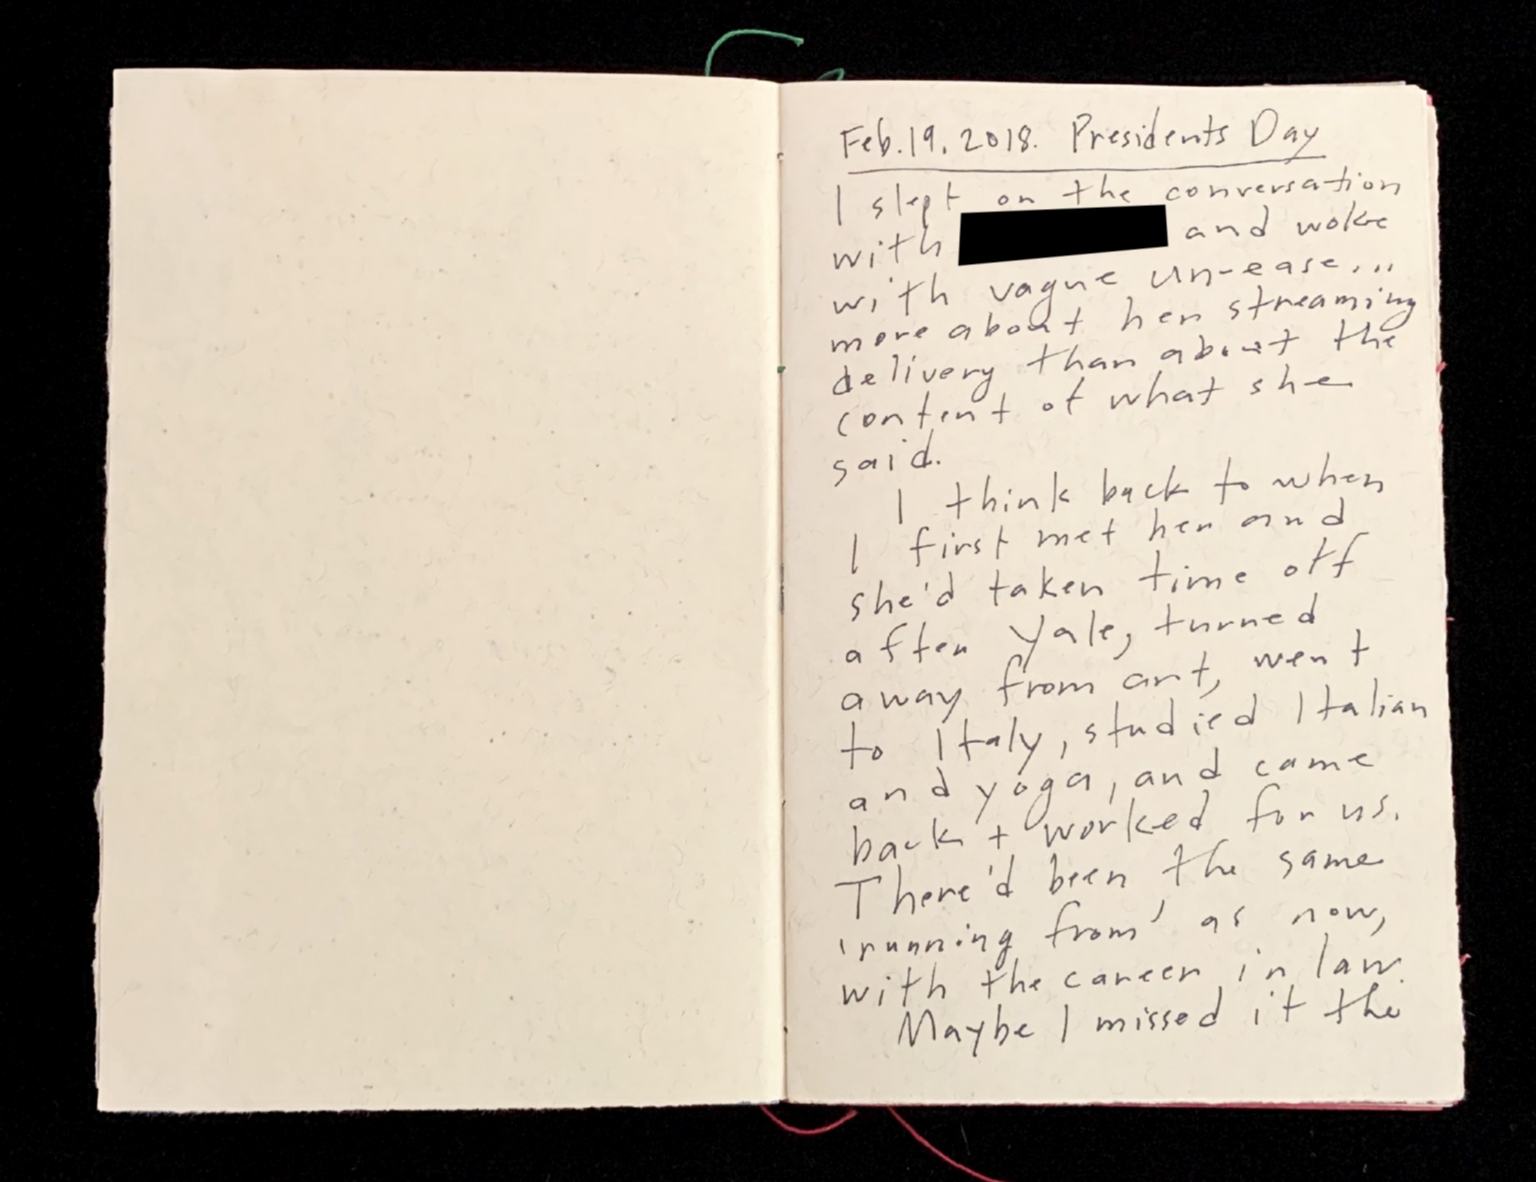 Feb. 19, 2018. Presidents Day
I slept on the conversation
with and woke
with vague un-ease...
more about her streaming
delivery than about the
content of what she
said.
I think back to when
I first met her and
she'd taken time off
after Yale, turned
away from art, went
to Italy, studied Italian
and yoga, and came
back + worked for us.
There'd been the same
'running from' as now,
with the career in law.
Maybe I missed it the